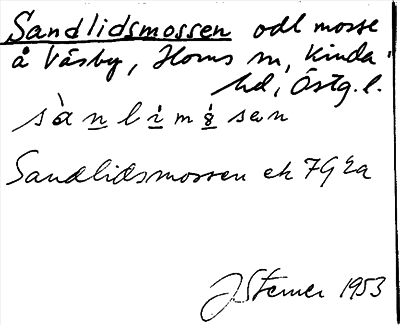 Sandlidsmossen odl mosse
å Väsby, Horns sn, Kinda
hd, Östg. l.
sànlimåsen
Sandlidsmossen ek 7G 2a
J Sterner 1953